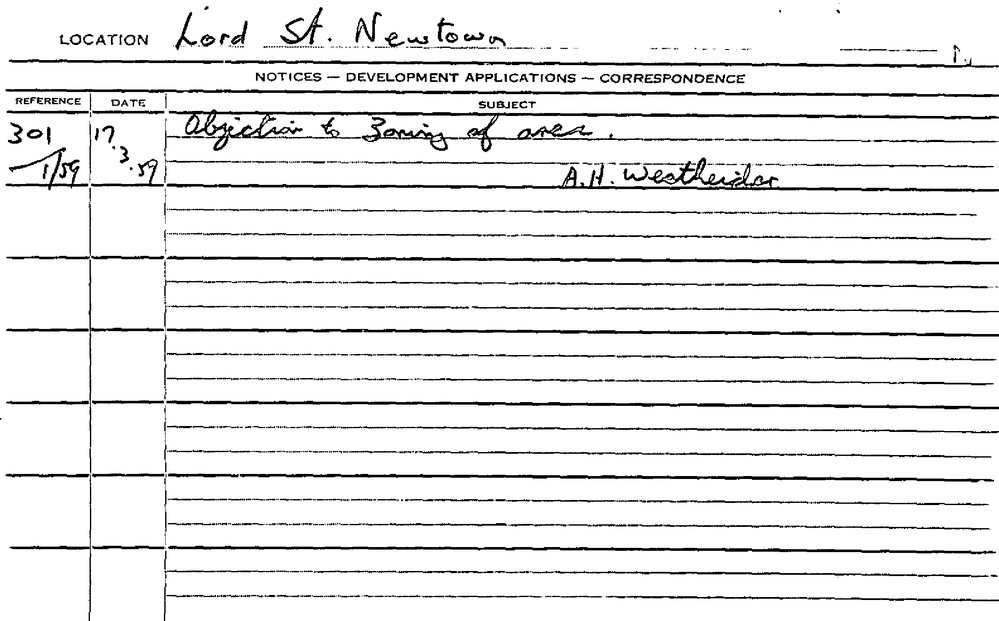 LOCATION Lord St. Newtown
NOTICES — DEVELOPMENT APPLICATIONS — CORRESPONDENCE
REFERENCE DATE SUBJECT
301 17. Objection to Zoning of area.
1/59 3.59 A.H.